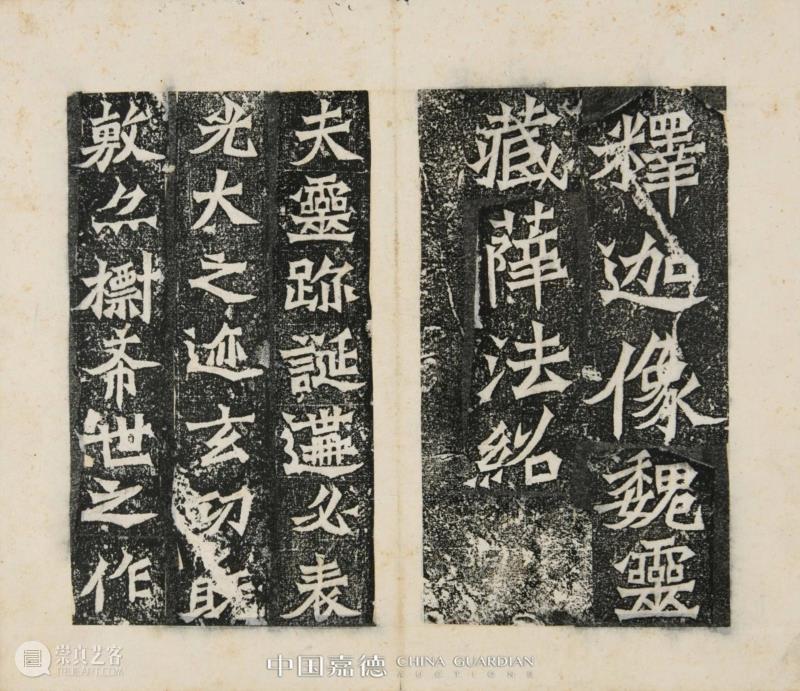 釋迦像魏靈
藏薛法紹
夫靈跡誕遘必表
光大之迹玄功既
敷亦標希世之作
崇真艺客
TRUEART.COM
中国嘉德 CHINA GUARDIAN
AUCTIONS